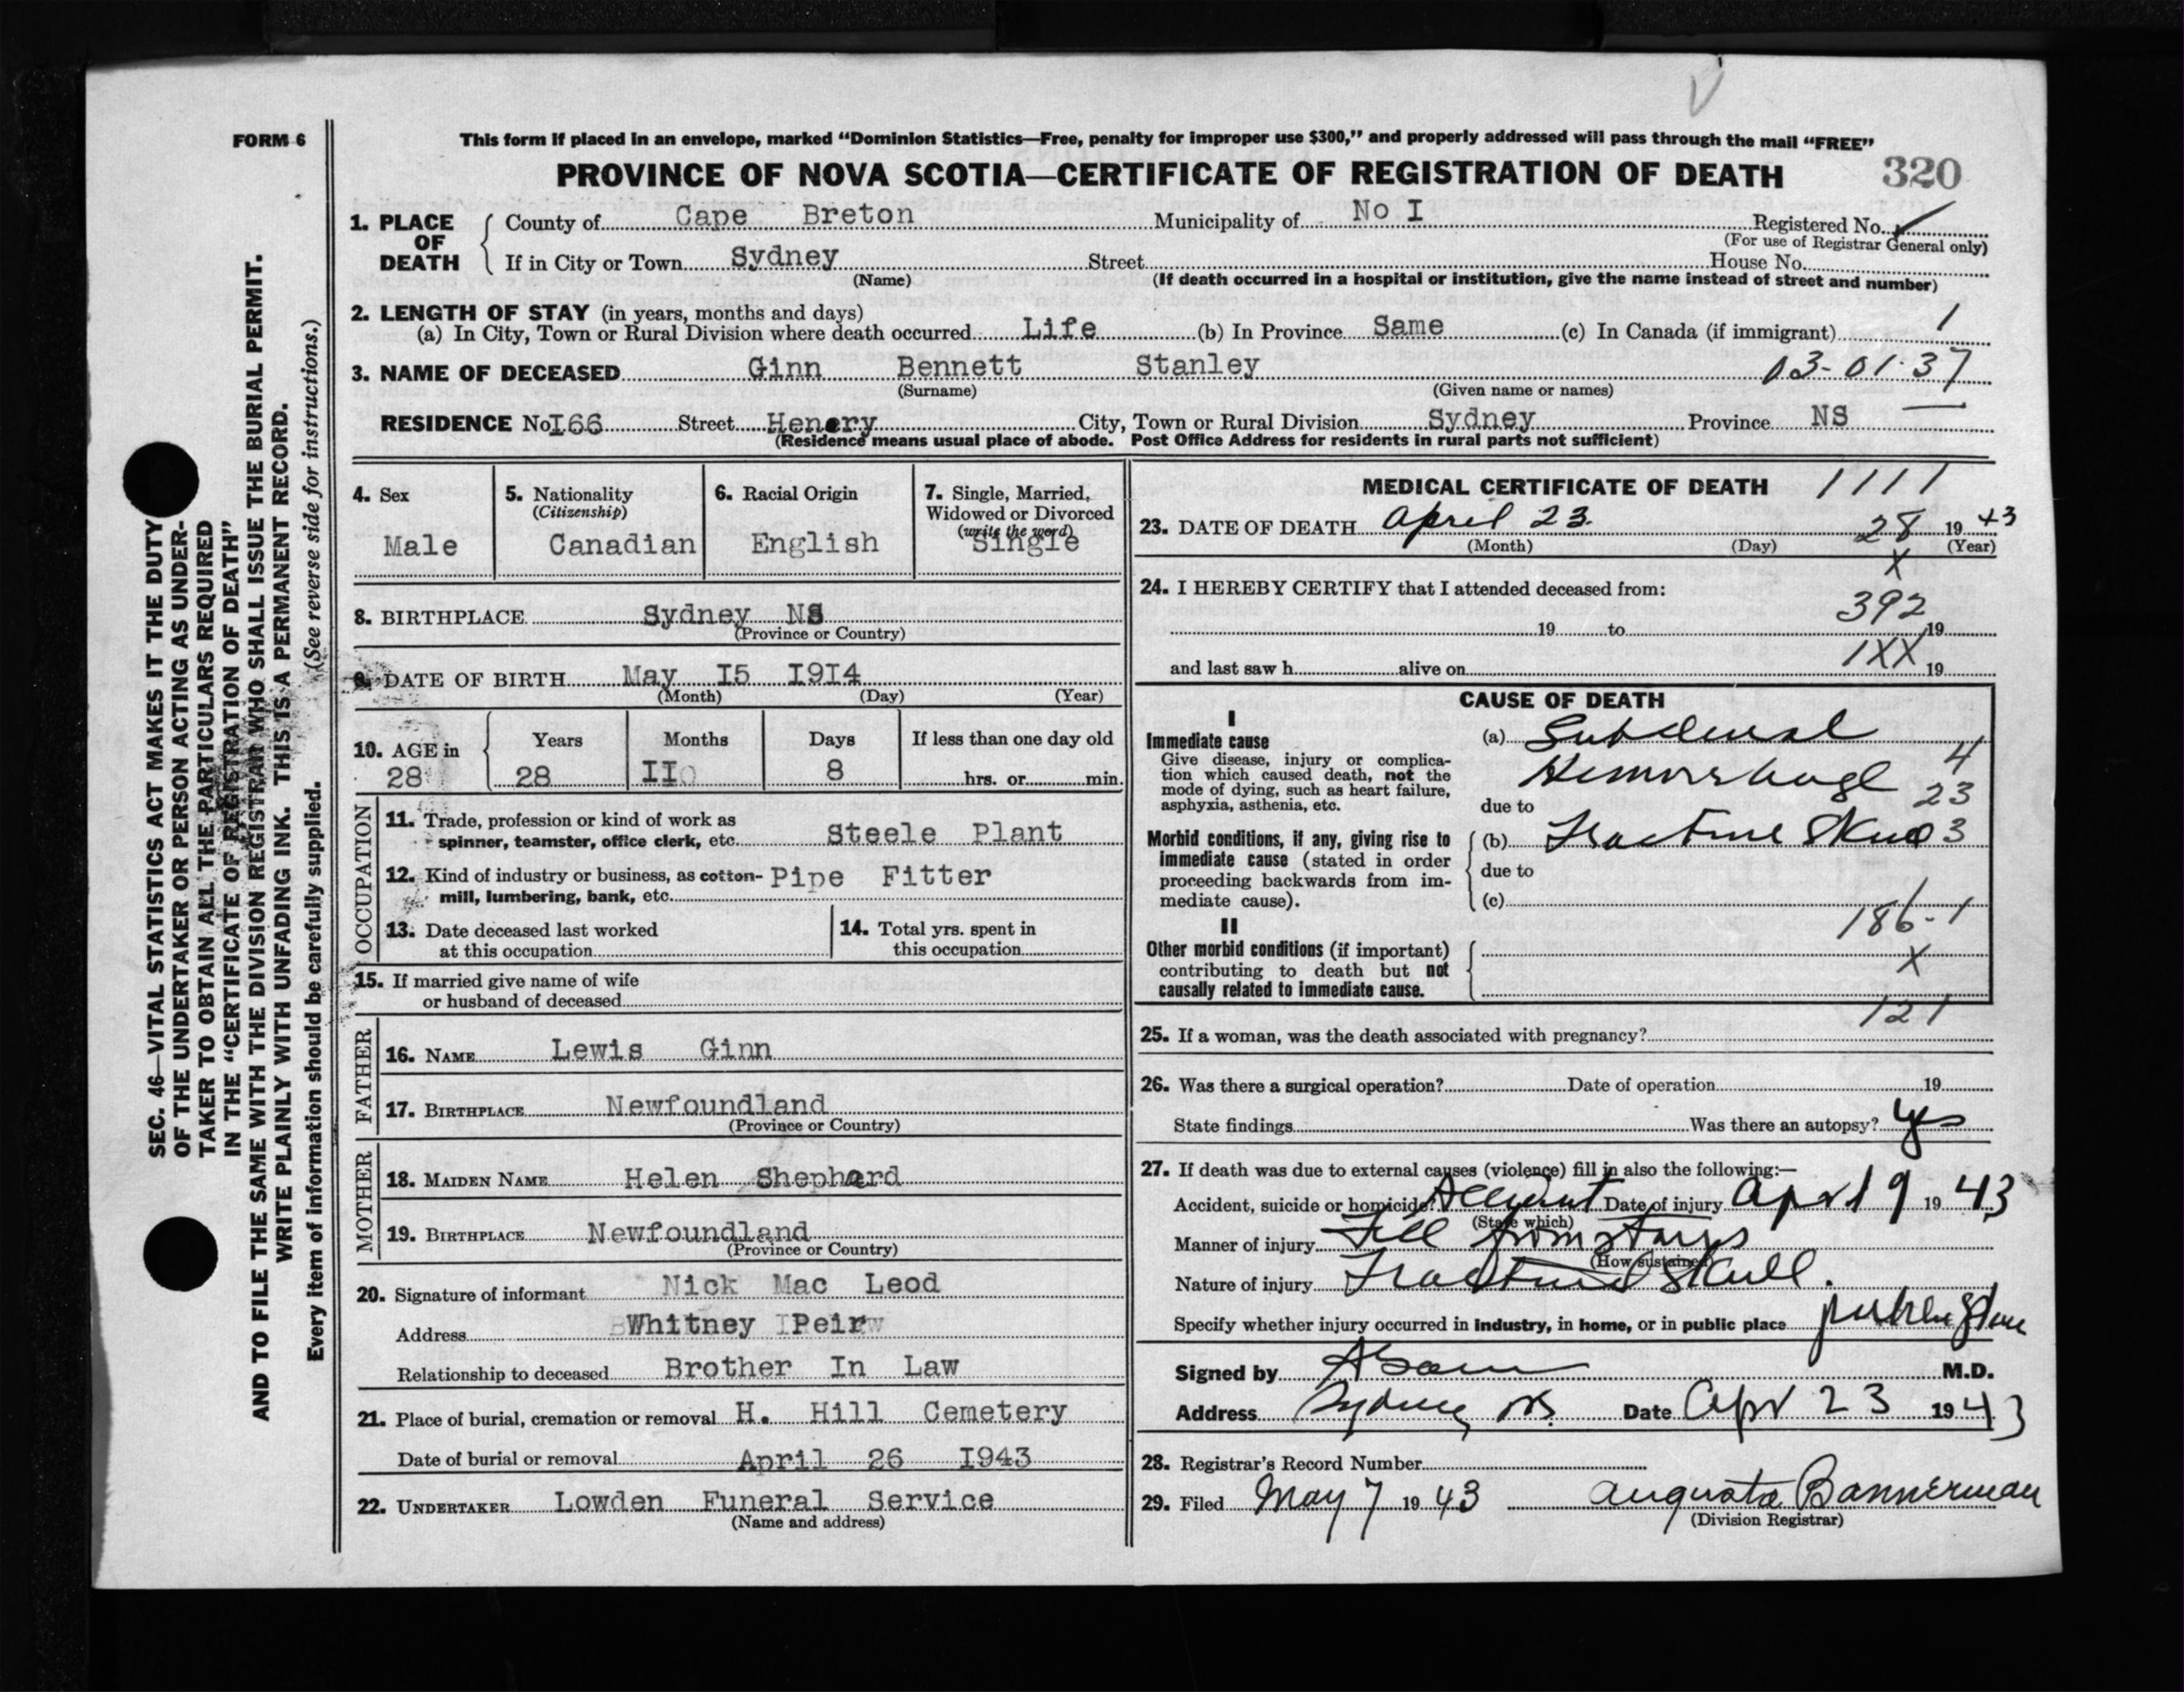 FORM 6
This form if placed in an envelope, marked “Dominion Statistics—Free, penalty for improper use $300,” and properly addressed will pass through the mail “FREE”
PROVINCE OF NOVA SCOTIA—CERTIFICATE OF REGISTRATION OF DEATH 320
1. PLACE OF DEATH { County of Cape Breton Municipality of No I Registered No.
(For use of Registrar General only)
If in City or Town Sydney Street House No.
(Name) (If death occurred in a hospital or institution, give the name instead of street and number)
2. LENGTH OF STAY (in years, months and days)
(a) In City, Town or Rural Division where death occurred Life (b) In Province Same (c) In Canada (if immigrant) 1
3. NAME OF DECEASED Ginn Bennett Stanley 03-01-37
(Surname) (Given name or names)
RESIDENCE No I66 Street Henery City, Town or Rural Division Sydney Province NS
(Residence means usual place of abode. Post Office Address for residents in rural parts not sufficient)
4. Sex
Male
5. Nationality
(Citizenship)
Canadian
6. Racial Origin
English
7. Single, Married,
Widowed or Divorced
(write the word)
Single
8. BIRTHPLACE Sydney NS
(Province or Country)
9. DATE OF BIRTH May I5 I9I4
(Month) (Day) (Year)
10. AGE in Years Months Days If less than one day old
28 28 II 8 hrs. or min.
OCCUPATION
11. Trade, profession or kind of work as
spinner, teamster, office clerk, etc. Steele Plant
12. Kind of industry or business, as cotton- Pipe Fitter
mill, lumbering, bank, etc.
13. Date deceased last worked
at this occupation
14. Total yrs. spent in
this occupation
15. If married give name of wife
or husband of deceased
FATHER
16. NAME Lewis Ginn
17. BIRTHPLACE Newfoundland
(Province or Country)
MOTHER
18. MAIDEN NAME Helen Shephard
19. BIRTHPLACE Newfoundland
(Province or Country)
20. Signature of informant Nick Mac Leod
Address Whitney Peir
Relationship to deceased Brother In Law
21. Place of burial, cremation or removal H. Hill Cemetery
Date of burial or removal April 26 I943
22. UNDERTAKER Lowden Funeral Service
(Name and address)
MEDICAL CERTIFICATE OF DEATH 1111
23. DATE OF DEATH April 23 28 19 43
(Month) (Day) (Year)
X
24. I HEREBY CERTIFY that I attended deceased from:
392
19 to 19
1XX
and last saw h alive on 19
CAUSE OF DEATH
I
Immediate cause
Give disease, injury or complica-
tion which caused death, not the
mode of dying, such as heart failure,
asphyxia, asthenia, etc.
(a) Subdural
Hemorrhage 4
due to 23
Morbid conditions, if any, giving rise to
immediate cause (stated in order
proceeding backwards from im-
mediate cause).
(b) Fracture Skull 3
due to
(c)
186-1
II
Other morbid conditions (if important)
contributing to death but not
causally related to immediate cause.
X
121
25. If a woman, was the death associated with pregnancy?
26. Was there a surgical operation? Date of operation 19
State findings Was there an autopsy? yes
27. If death was due to external causes (violence) fill in also the following:—
Accident, suicide or homicide? Accident Date of injury Apr 19 19 43
(State which)
Manner of injury Fell from stairs
(How sustained)
Nature of injury Fractured Skull.
Specify whether injury occurred in industry, in home, or in public place public place
Signed by M.D.
Address Sydney NS. Date Apr 23 19 43
28. Registrar's Record Number
29. Filed May 7 19 43 Augusta Bannerman
(Division Registrar)
SEC. 46—VITAL STATISTICS ACT MAKES IT THE DUTY
OF THE UNDERTAKER OR PERSON ACTING AS UNDER-
TAKER TO OBTAIN ALL THE PARTICULARS REQUIRED
IN THE “CERTIFICATE OF REGISTRATION OF DEATH”
AND TO FILE THE SAME WITH THE DIVISION REGISTRAR WHO SHALL ISSUE THE BURIAL PERMIT.
WRITE PLAINLY WITH UNFADING INK. THIS IS A PERMANENT RECORD.
Every item of information should be carefully supplied. (See reverse side for instructions.)